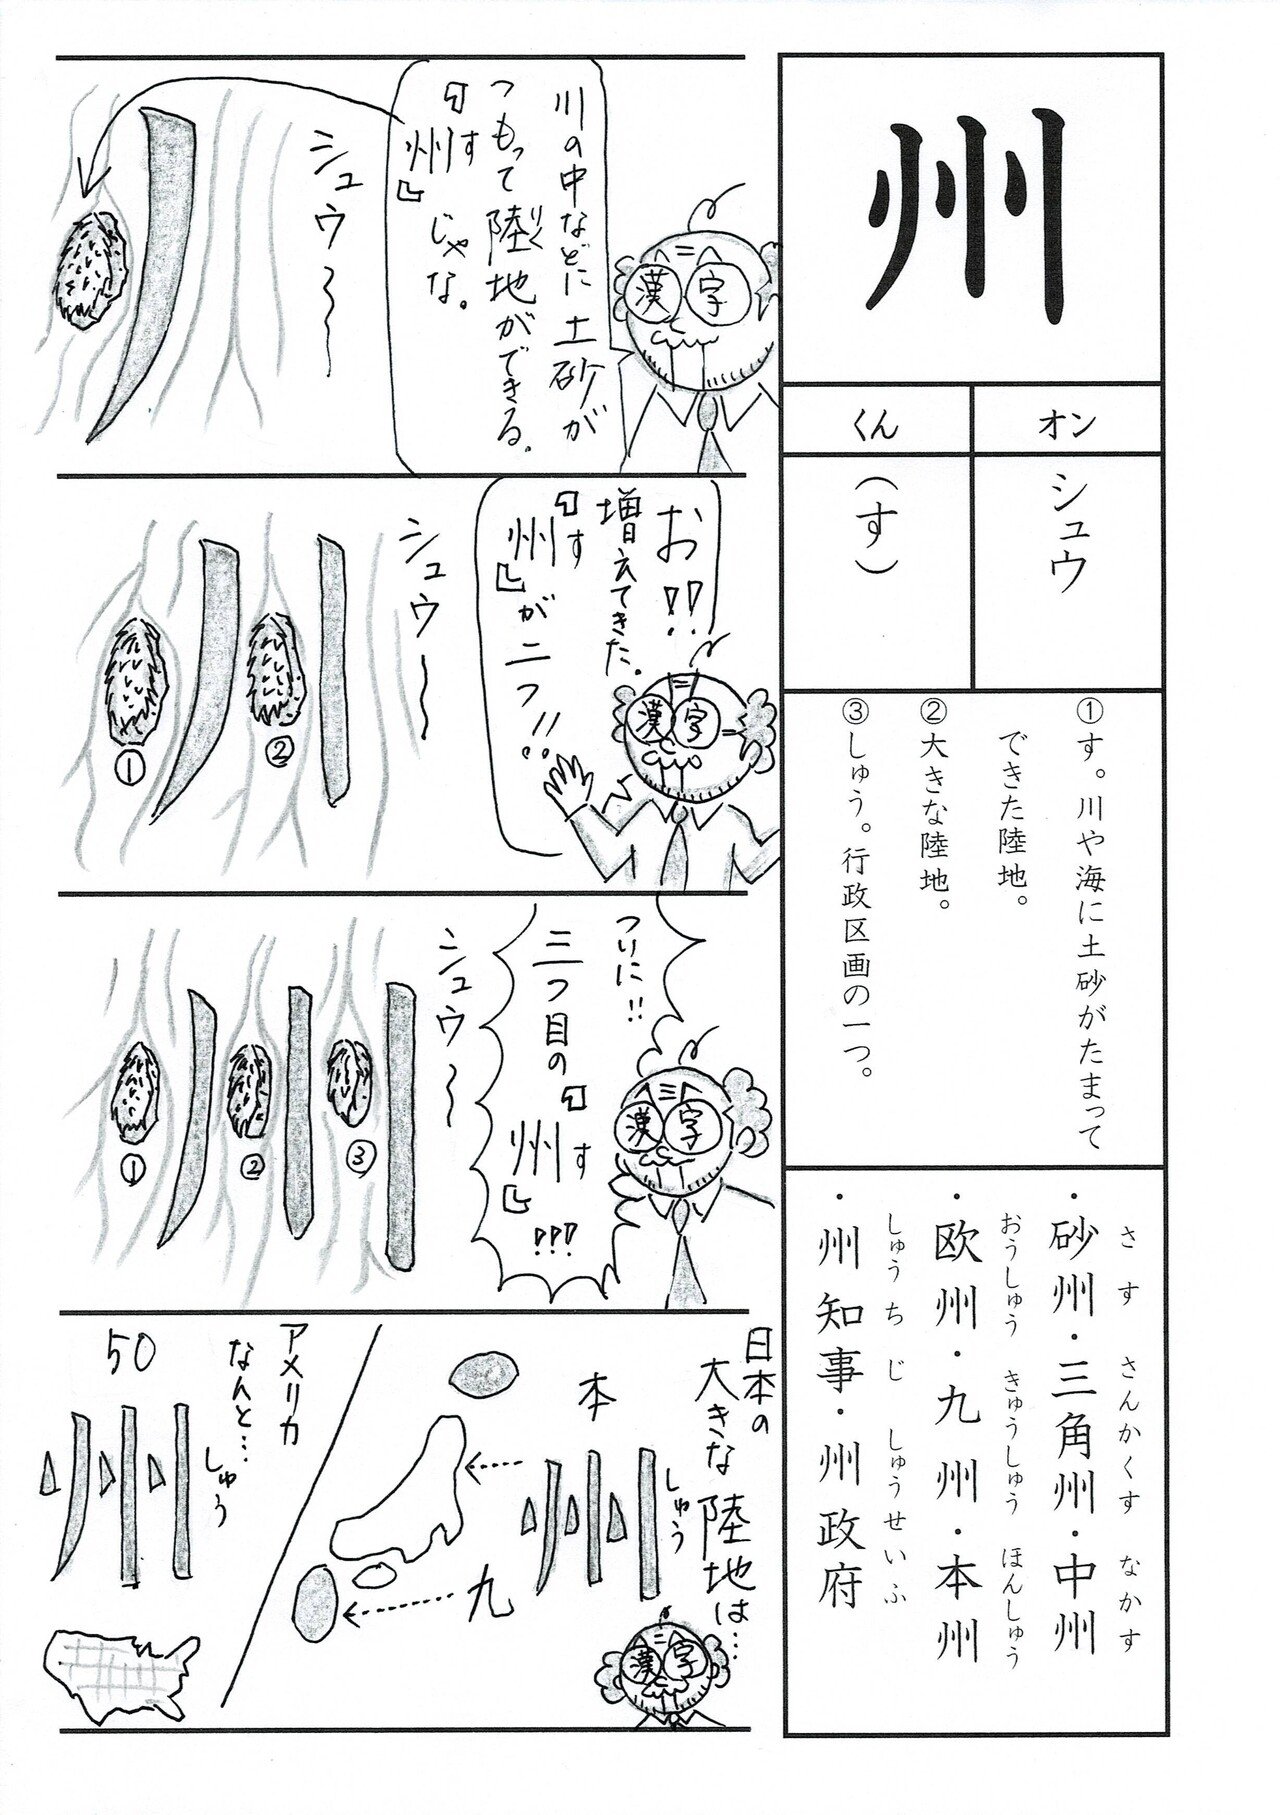 州
オン
シュウ
くん
（す）
①す。川や海に土砂がたまって
できた陸地。
②大きな陸地。
③しゅう。行政区画の一つ。
さす さんかくす なかす
・砂州・三角州・中州
おうしゅう きゅうしゅう ほんしゅう
・欧州・九州・本州
しゅうちじ しゅうせいふ
・州知事・州政府
川の中などに土砂が
つもって陸地ができる。
りく
『州』じゃな。
す
漢字
シュウ〜〜
お!!
増えてきた。
『州』が二つ!!
す
漢字
シュウ〜
①
②
ついに!!
三つ目の『州』!!!
す
漢字
シュウ〜
①
②
③
日本の
大きな陸地は…
本州
しゅう
九
漢字
アメリカ
なんと…
50州
しゅう